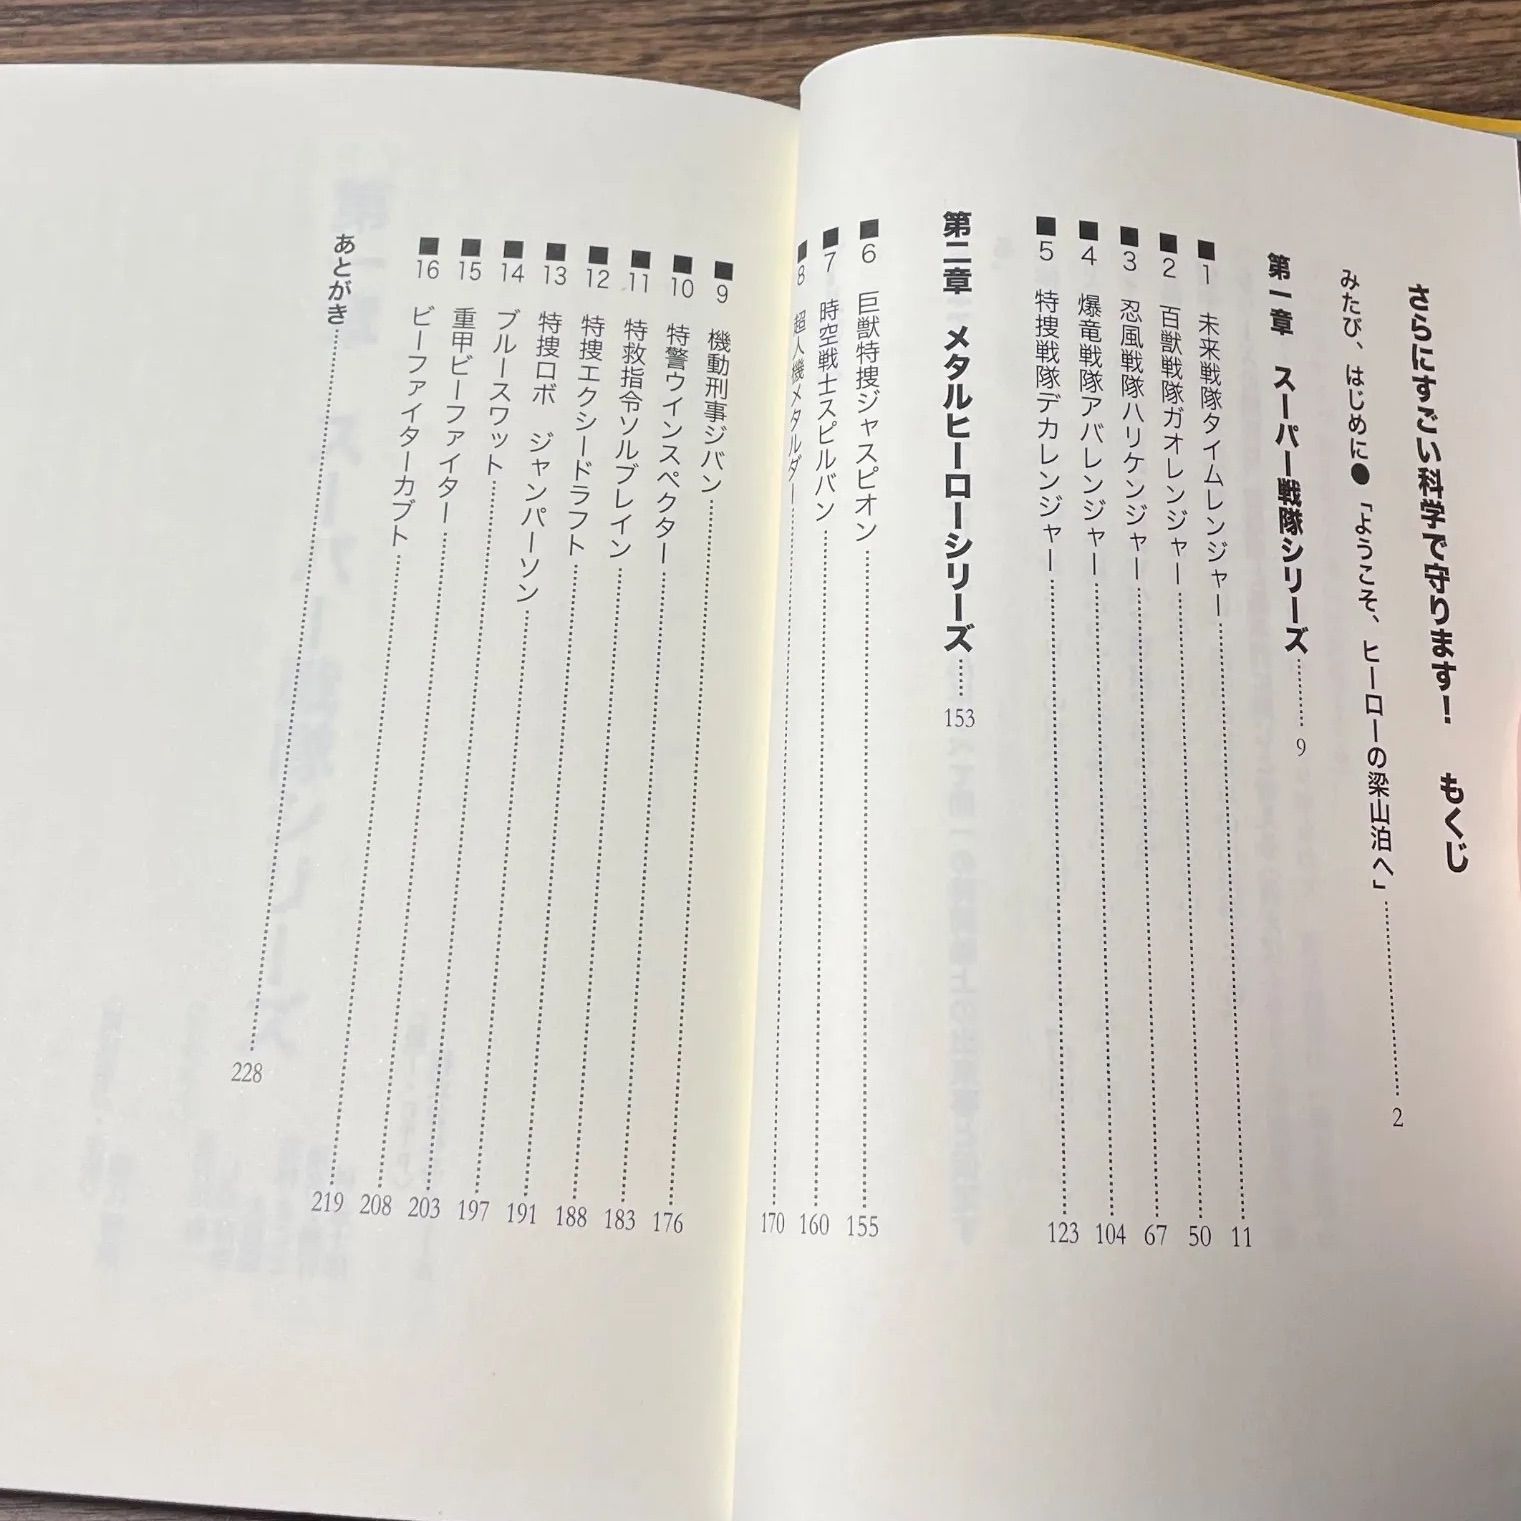 さらにすごい科学で守ります！　もくじ
みたび、はじめに●「ようこそ、ヒーローの梁山泊へ」 2
第一章　スーパー戦隊シリーズ 9
■1　未来戦隊タイムレンジャー 11
■2　百獣戦隊ガオレンジャー 50
■3　忍風戦隊ハリケンジャー 67
■4　爆竜戦隊アバレンジャー 104
■5　特捜戦隊デカレンジャー 123
第二章　メタルヒーローシリーズ 153
■6　巨獣特捜ジャスピオン 155
■7　時空戦士スピルバン 160
■8　超人機メタルダー 170
■9　機動刑事ジバン 176
■10　特警ウインスペクター 183
■11　特救指令ソルブレイン 188
■12　特捜エクシードラフト 191
■13　特捜ロボ　ジャンパーソン 197
■14　ブルースワット 203
■15　重甲ビーファイター 208
■16　ビーファイターカブト 219
あとがき 228